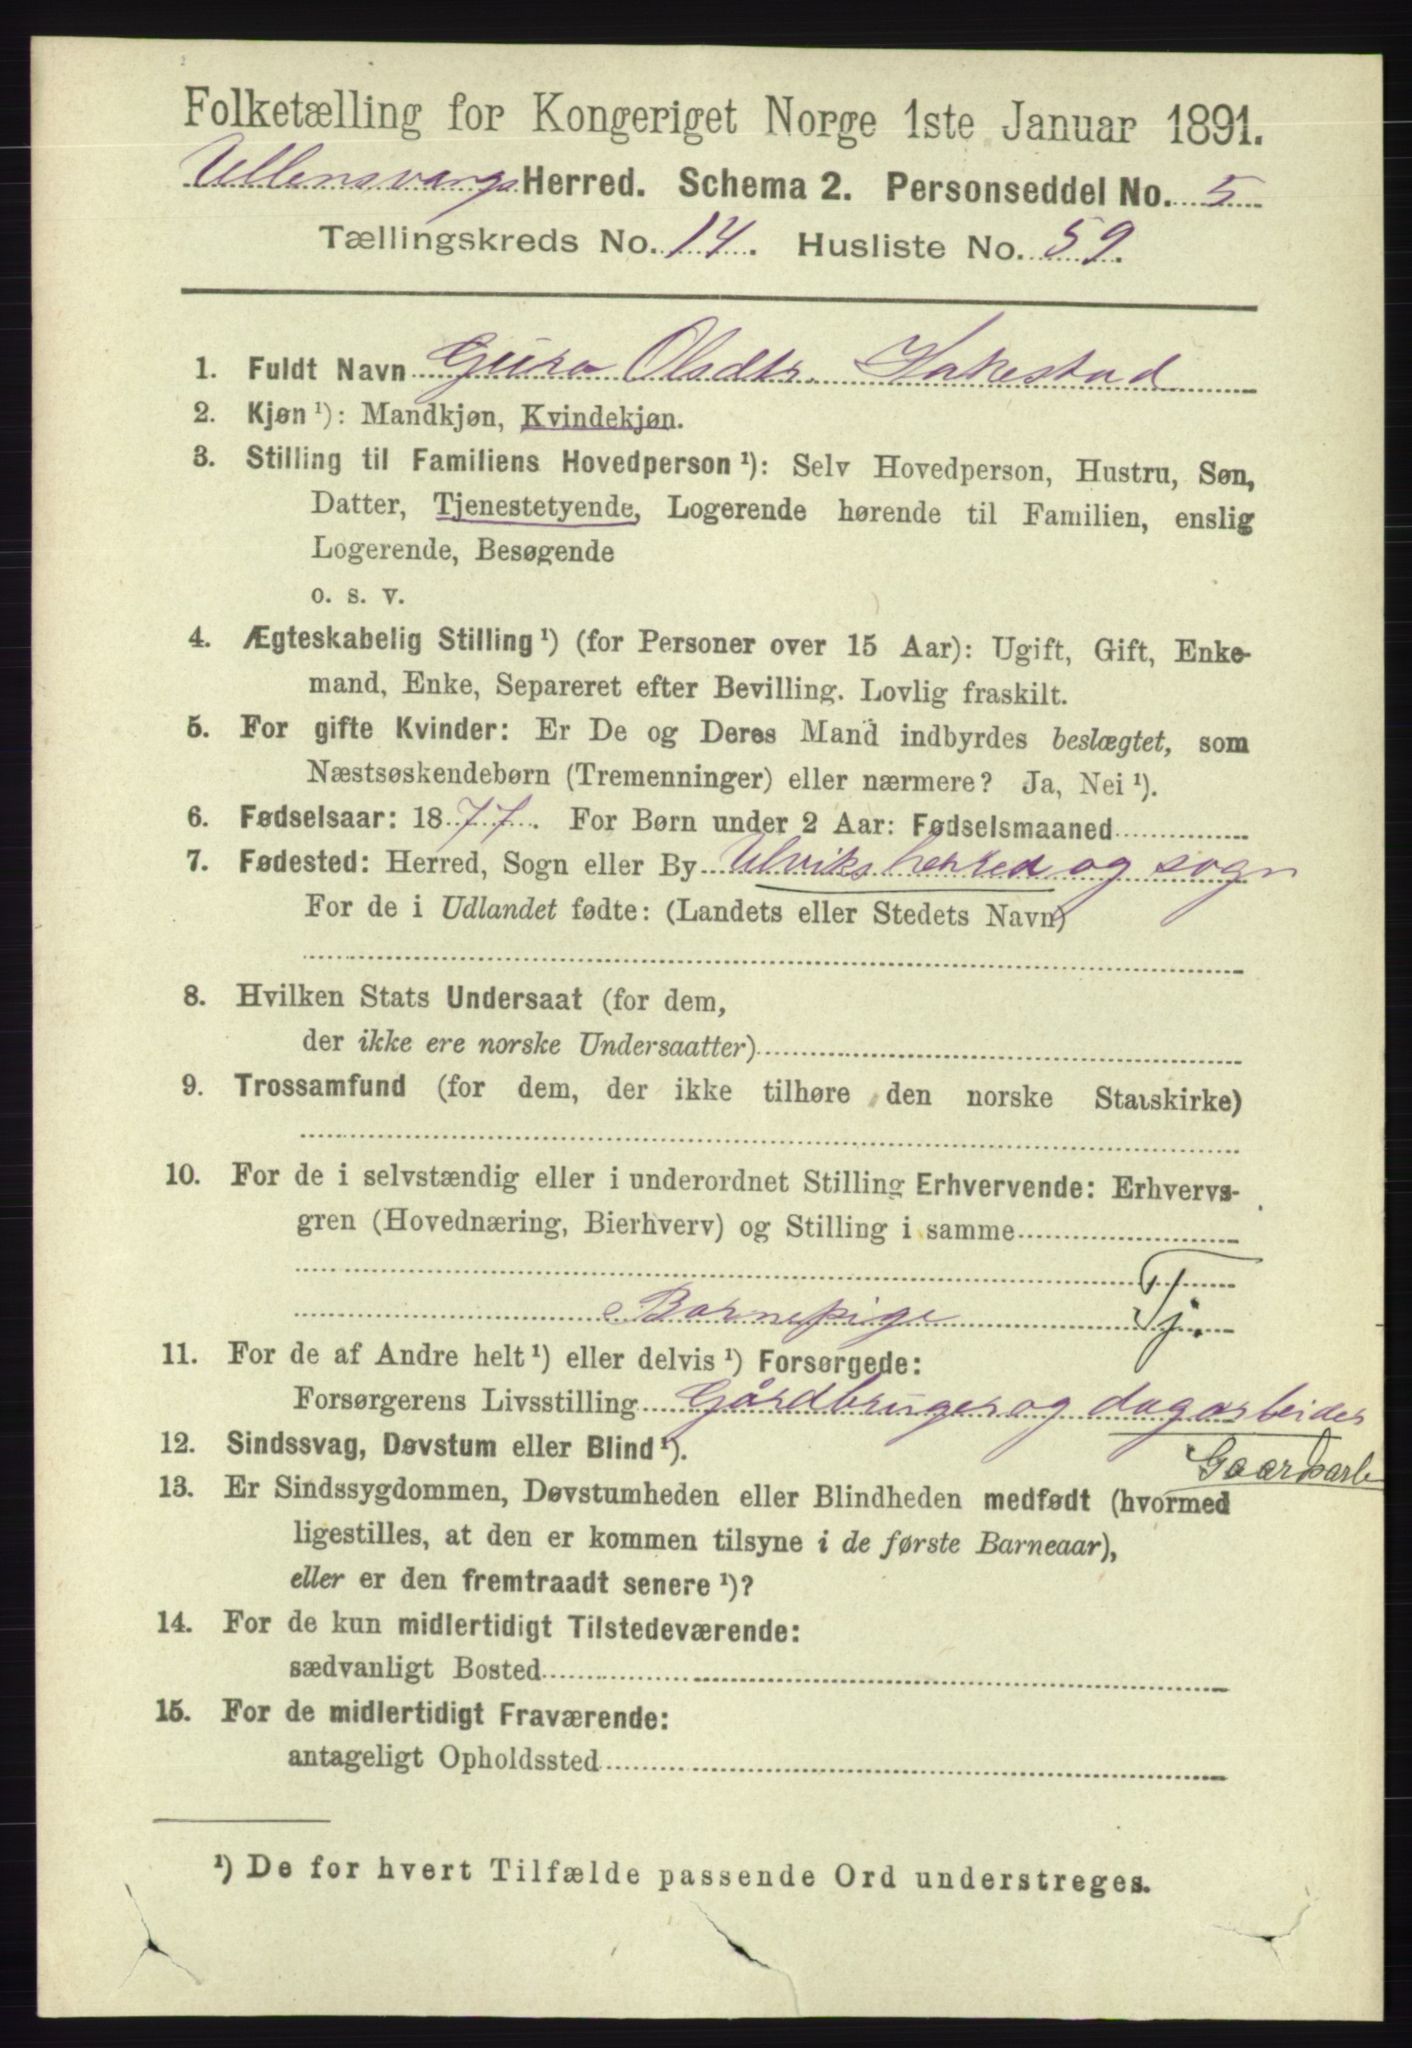 Folketælling for Kongeriget Norge 1ste Januar 1891.
Ullensvangs Herred. Schema 2. Personseddel No. 5
Tællingskreds No. 14. Husliste No. 59.
1. Fuldt Navn Guro Olsdtr. Hakestad
2. Kjøn ¹): Mandkjøn, Kvindekjøn.
3. Stilling til Familiens Hovedperson ¹): Selv Hovedperson, Hustru, Søn,
Datter, Tjenestetyende, Logerende hørende til Familien, enslig
Logerende, Besøgende
o. s. v.
4. Ægteskabelig Stilling ¹) (for Personer over 15 Aar): Ugift, Gift, Enke-
mand, Enke, Separeret efter Bevilling. Lovlig fraskilt.
5. For gifte Kvinder: Er De og Deres Mand indbyrdes beslægtet, som
Næstsøskendebørn (Tremenninger) eller nærmere? Ja, Nei ¹).
6. Fødselsaar: 1877. For Børn under 2 Aar: Fødselsmaaned
7. Fødested: Herred, Sogn eller By Ulviks herred og sogn
For de i Udlandet fødte: (Landets eller Stedets Navn)
8. Hvilken Stats Undersaat (for dem,
der ikke ere norske Undersaatter)
9. Trossamfund (for dem, der ikke tilhøre den norske Statskirke)
10. For de i selvstændig eller i underordnet Stilling Erhvervende: Erhvervs-
gren (Hovednæring, Bierhverv) og Stilling i samme
Barnepige Tj.
11. For de af Andre helt ¹) eller delvis ¹) Forsørgede:
Forsørgerens Livsstilling Gårdbruger og dagarbeider
Gaardsarb
12. Sindssvag, Døvstum eller Blind ¹).
13. Er Sindssygdommen, Døvstumheden eller Blindheden medfødt (hvormed
ligestilles, at den er kommen tilsyne i de første Barneaar),
eller er den fremtraadt senere ¹)?
14. For de kun midlertidigt Tilstedeværende:
sædvanligt Bosted
15. For de midlertidigt Fraværende:
antageligt Opholdssted
¹) De for hvert Tilfælde passende Ord understreges.